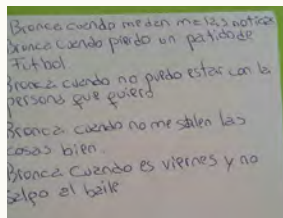 Bronca cuando me dan malas noticias
Bronca cuando pierdo un partido de
Futbol.
Bronca cuando no puedo estar con la
persona que quiero
Bronca cuando no me salen las
cosas bien
Bronca cuando es viernes y no
salgo al baile